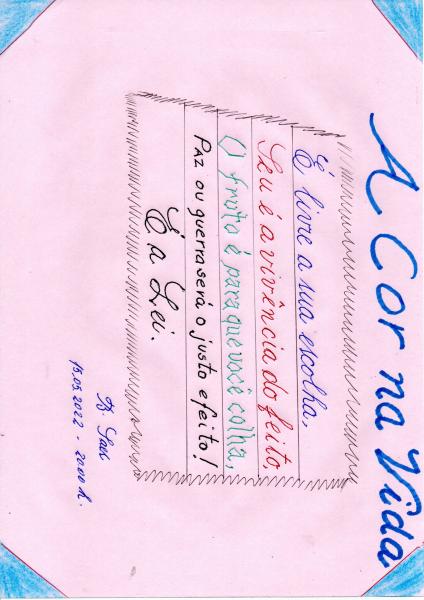 A Cor na Vida
É livre a sua escolha,
Seu é a vivência do feito,
O fruto é para que você colha,
Paz ou guerra será o justo efeito!
É a Lei.
15.05.2022 - 20:00 h.